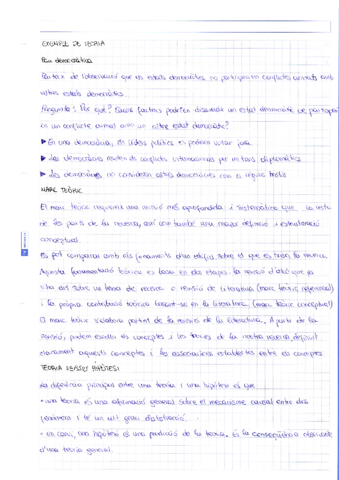 EXEMPLE DE TEORIA
Pau democràtica
Partex de l'observació que els estats democràtics no participen en conflictes armats amb
altres estats democràtics.
Pregunta: Per què? Quins factors podrien dissuadir un estat democràtic de participar
en un conflicte armat amb un altre estat democràtic?
▶ En una democràcia, els líders polítics es poden votar fora
▶ Les democràcies resolen els conflictes internacionals per mitjans diplomàtics
▶ Les democràcies no consideren estats democràtics com a règims hostils
MARC TEÒRIC
El marc teòric requereix una revisió més aprofundida i sistemàtica que la resta
de les parts de la recerca, així com també una major definició i estructuració
conceptual.
Es pot comparar amb els fonaments d'un edifici sobre el que es basa la recerca.
Aquesta fonamentació teòrica es basa en dos etapes: la revisió d'allò que ja
s'ha dit sobre un tema de recerca o revisió de literatura (marc teòric referencial)
i la pròpia contribució teòrica basant-se en la literatura. (marc teòric conceptual)
El marc teòric s'elabora partint de la revisió de la literatura. A partir de la
revisió, podem establir els conceptes i les bases de la nostra recerca definint
clarament aquests conceptes i les associacions establertes entre els conceptes
TEORIA VERSUS HIPÒTESI
La diferència principal entre una teoria i una hipòtesi és que:
• una teoria és una afirmació general sobre el mecanisme causal entre dos
fenòmens i té un alt grau d'abstracció.
• en canvi, una hipòtesi és una predicció de la teoria. És la conseqüència observable
d'una teoria general.